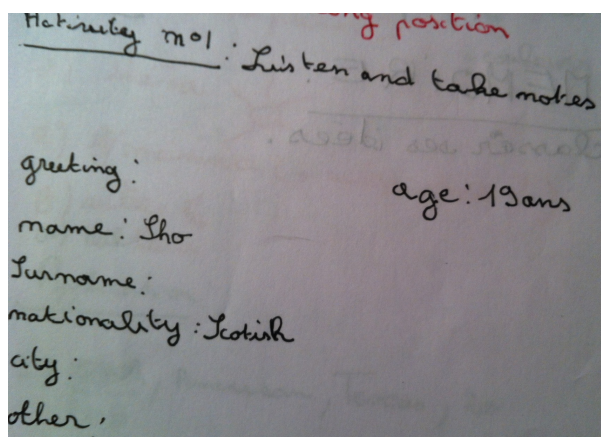 position
Activity n°1: Listen and take notes
greeting:
age: 19 ans
name: Sho
Surname:
nationality: Scotish
city:
other: